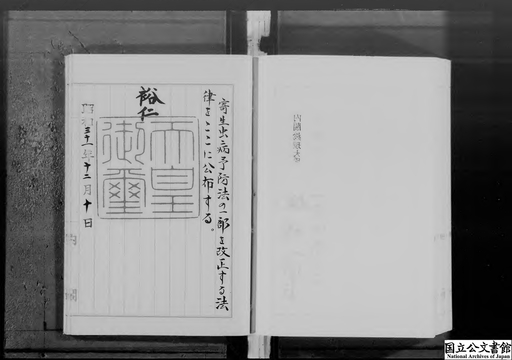 寄生虫病予防法の一部を改正する法
律をここに公布する。
裕仁
天皇
御璽
昭和三十一年十二月十日
国立公文書館
National Archives of Japan